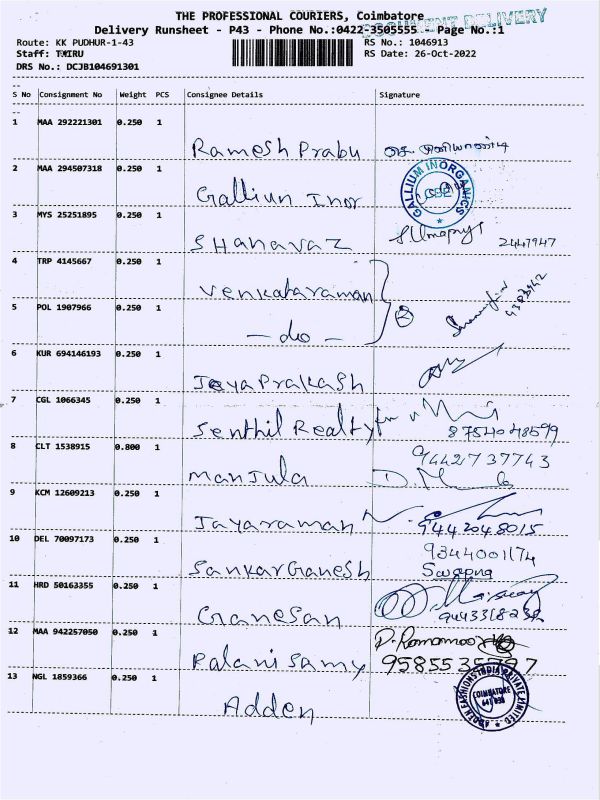 THE PROFESSIONAL COURIERS, Coimbatore
DOCUMENT DELIVERY
Delivery Runsheet - P43 - Phone No.:0422-3505555 Page No.:1
Route: KK PUDHUR-1-43 RS No.: 1046913
Staff: TMIRU RS Date: 26-Oct-2022
DRS No.: DCJB104691301
S No Consignment No Weight PCS Consignee Details Signature
1 MAA 292221301 0.250 1
Ramesh Prabu
2 MAA 294507318 0.250 1
Gallium Inor GALLIUM INORGANICS CBE
3 MYS 25251895 0.250 1
Shanavaz 2447947
4 TRP 4145667 0.250 1
Venkataraman
5 POL 1907966 0.250 1
- do - 2
6 KUR 694146193 0.250 1
JeyaPrakash
7 CGL 1066345 0.250 1
Senthil Realty for 8754048599
8 CLT 1538915 0.800 1 9442737743
Manjula
9 KCM 12609213 0.250 1
Jayaraman 9442048015
10 DEL 70097173 0.250 1 9344001174
Sankar Ganesh Swapna
11 HRD 50163355 0.250 1
Ganesan
12 MAA 942257050 0.250 1
Palani Samy
13 NGL 1859366 0.250 1
Adden COIMBATORE